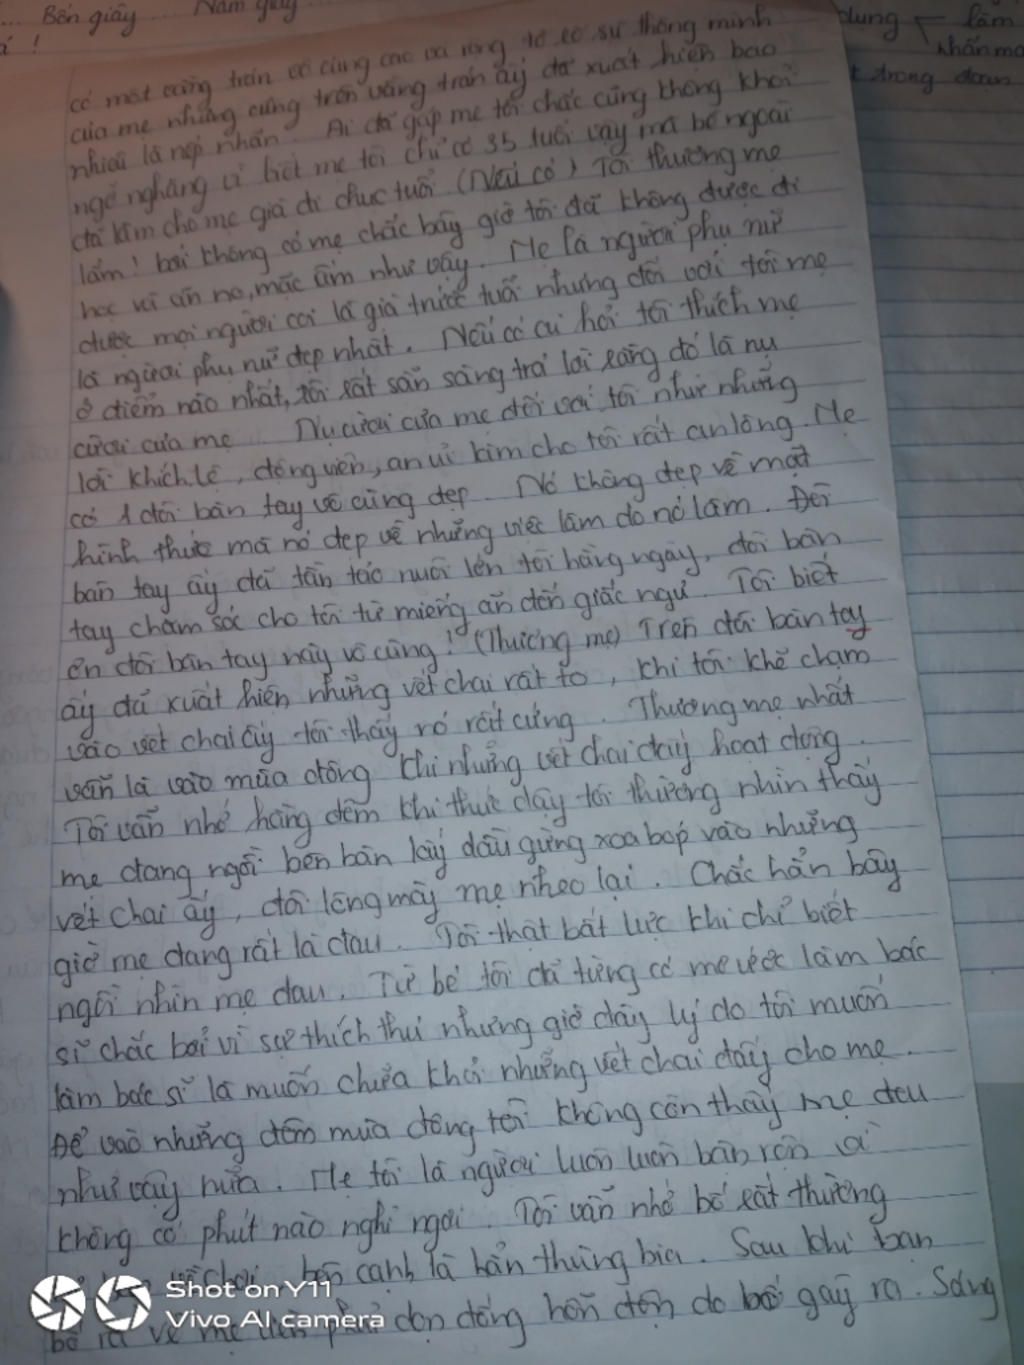 Bốn giây Năm giây
dung lãm
nhấn mạ
t trong đoạn
có một vầng trán vô cùng cao và rộng tỏ rõ sự thông minh
của mẹ nhưng cưng trên vầng trán ấy đã xuất hiện bao
nhiêu là nếp nhăn. Ai đã gặp mẹ tôi chắc cũng không khỏi
ngỡ ngàng vì biết mẹ tôi chỉ có 35 tuổi vậy mà bề ngoài
đã làm cho mẹ già đi chục tuổi (Nếu có) Tôi thương mẹ
lắm! bởi không có mẹ chắc bây giờ tôi đã không được đi
học và ăn no, mặc ấm như vậy. Mẹ là người phụ nữ
được mọi người coi là già trước tuổi nhưng đối với tôi mẹ
là người phụ nữ đẹp nhất. Nếu có ai hỏi tôi thích mẹ
ở điểm nào nhất, tôi rất sẵn sàng trả lời rằng đó là nụ
cười của mẹ. Nụ cười của mẹ đối với tôi như những
lời khích lệ, động viên, an ủi làm cho tôi rất an lòng. Mẹ
có 1 đôi bàn tay vô cùng đẹp. Nó không đẹp về mặt
hình thức mà nó đẹp về những việc làm do nó làm. Đôi
bàn tay ấy đã tần tảo nuôi lớn tôi hằng ngày, đôi bàn
tay chăm sóc cho tôi từ miếng ăn đến giấc ngủ. Tôi biết
ơn đôi bàn tay này vô cùng! (Thương mẹ) Trên đôi bàn tay
ấy đã xuất hiện những vết chai rất to, khi tôi khẽ chạm
vào vết chai ấy tôi thấy nó rất cứng. Thương mẹ nhất
vẫn là vào mùa đông khi những vết chai đấy hoạt động.
Tôi vẫn nhớ hằng đêm khi thức dậy tôi thường nhìn thấy
mẹ đang ngồi bên bàn lấy dầu gừng xoa bóp vào những
vết chai ấy, đôi lông mày mẹ nheo lại. Chắc hẳn bây
giờ mẹ đang rất là đau. Tôi thật bất lực khi chỉ biết
ngồi nhìn mẹ đau. Từ bé tôi đã từng có mơ ước làm bác
sĩ chắc bởi vì sự thích thú nhưng giờ đây lý do tôi muốn
làm bác sĩ là muốn chữa khỏi những vết chai đấy cho mẹ.
Để vào những đêm mùa đông tôi không còn thấy mẹ đau
như vậy nữa. Mẹ tôi là người luôn luôn bận rộn và
không có phút nào nghỉ ngơi. Tôi vẫn nhớ bố rất thường
bên cạnh là hẳn thùng bia. Sau khi bạn
bố ra về mẹ liền phải dọn đống hỗn độn do bố gây ra. Sáng
Shot on Y11
Vivo AI camera